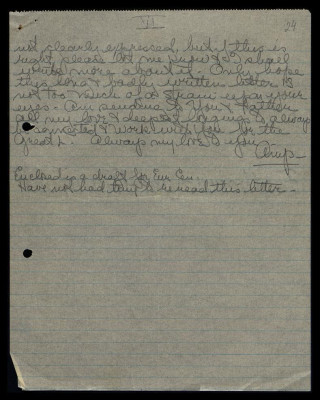 VI
24
not clearly expressed, but if this is
right please let me know & I shall
write more about it. Only hope
this long & badly written letter is
not too much of a strain upon your
eyes. Am sending to You &
all my love & deepest longing is always
to be connected & work with you for the
Great L. Always my love to you
Enclosed is a draft for
Have not had time to reread this letter -